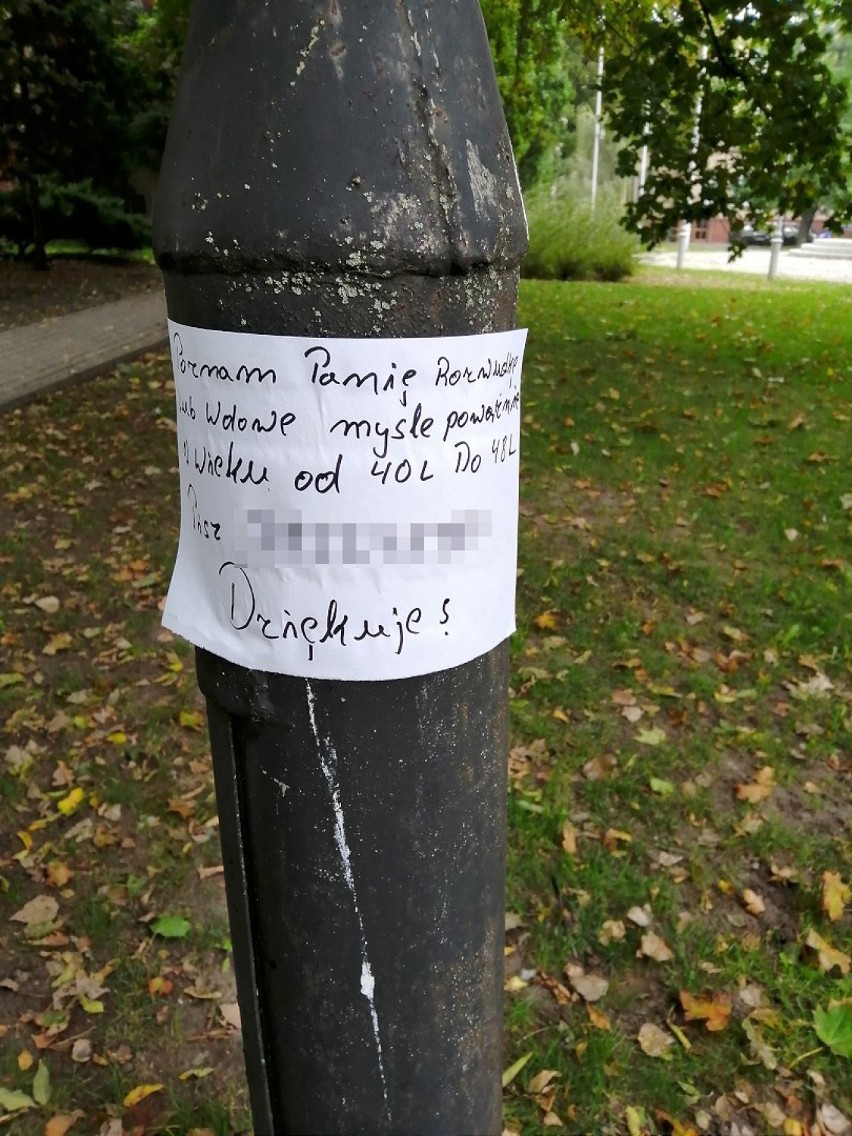 Poznam Panię Rozwudkę
lub Wdowe mysle poważnie
w wieku od 40L Do 48L
Pisz
Dziękuje!